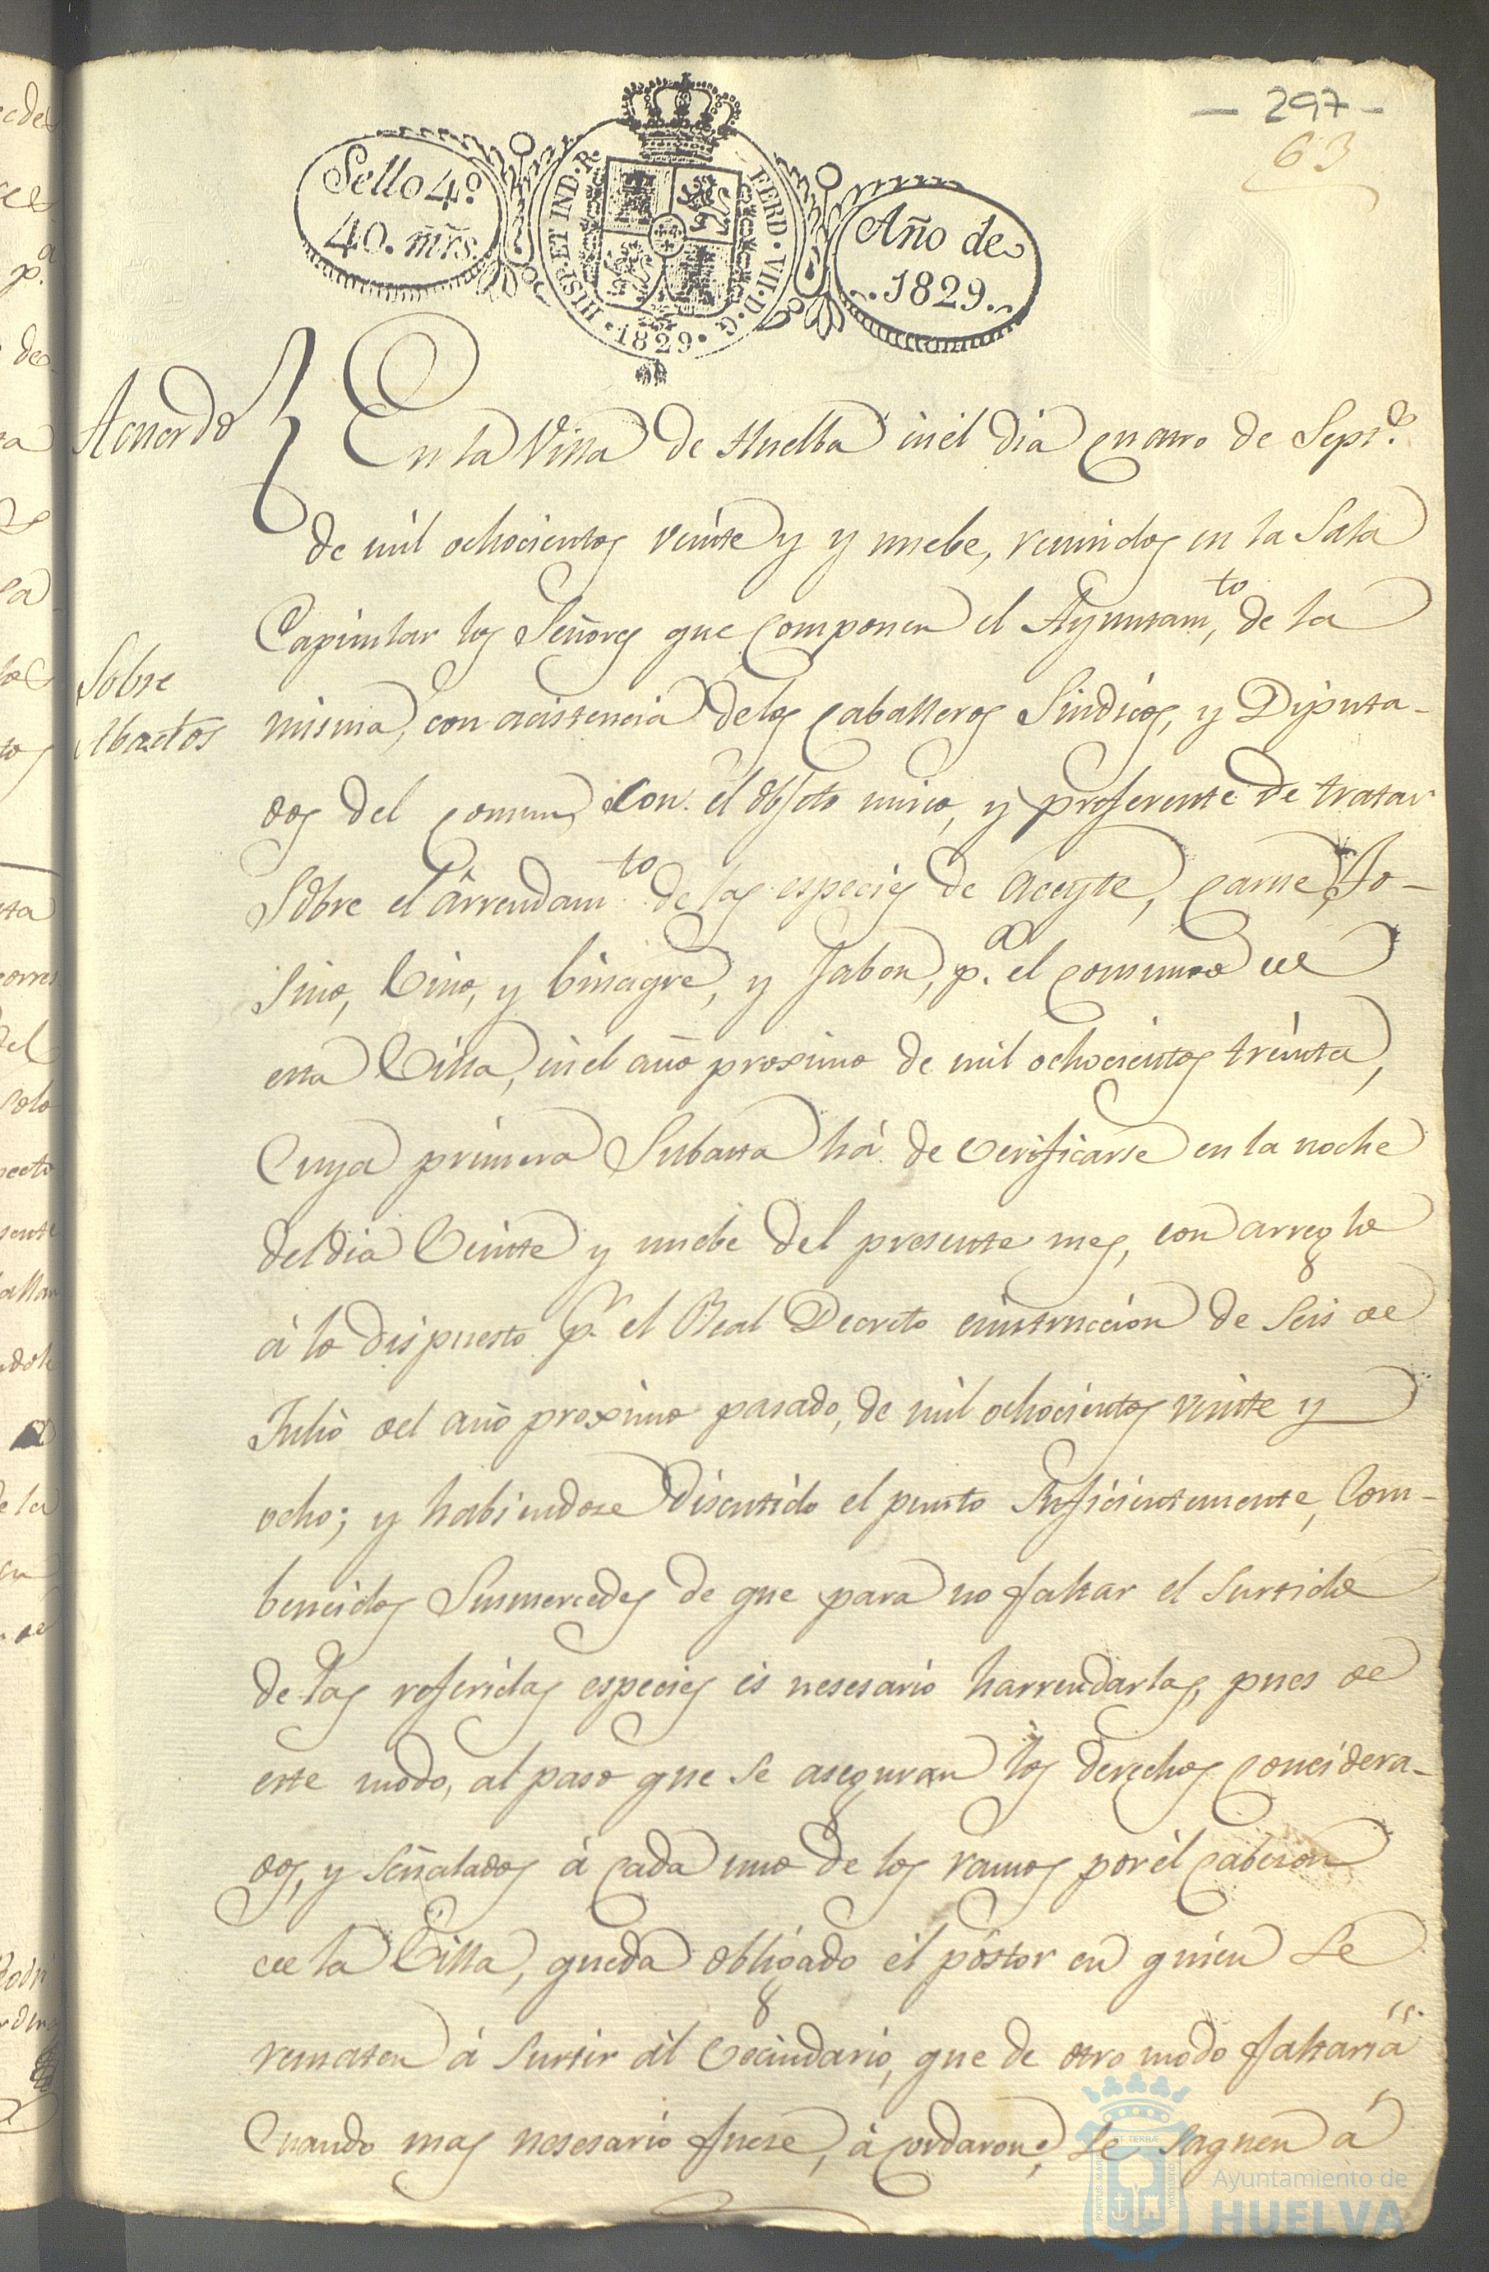 — 297 —
63
Sello 4º
40. m̃rs.
HISP. ET IND. R.
FERD. VII. D. G.
1829.
Año de
1829.
Acuerdo
En la Villa de Huelba en el dia cuatro de Sepre.
de mil ochocientos veinte y y nuebe, reunidos en la Sala
Capitular los Señores que componen el Ayuntamto, de la
Sobre
Abastos
misma, con acistencia delos Caballeros Sindicos, y Diputa-
dos del comun, con el objeto unico, y preferente de tratar
Sobre el arrendamto de las especies de Aceyte, Carne, To-
sino, Vino, y binagre, y Jabon, pa. el consumo de
esta Villa, en el año proximo de mil ochocientos treinta,
Cuya primera Subasta há de verificarse en la noche
del dia Veinte y nuebe del presente mes, con arreglo
á lo dispuesto pr. el Real Decreto einstruccion de Seis de
Julio del año proximo pasado, de mil ochocientos veinte y
ocho; y habiendose discutido el punto Suficientemente, Com-
bencidos Susmercedes de que para no faltar el Surtido
de las referidas especies es nesesario harrendarlas, pues de
este modo, al paso que se aseguran los derechos concidera-
dos, y señalados á cada uno de los ramos por el cabezon
de la Villa, queda obligado el postor en quien Se
rematen á Surtir ál Vecindario, que de otro modo faltaria
Cuando mas nesesario fuese, ácordaron; Se Saquen á
Ayuntamiento de
HUELVA